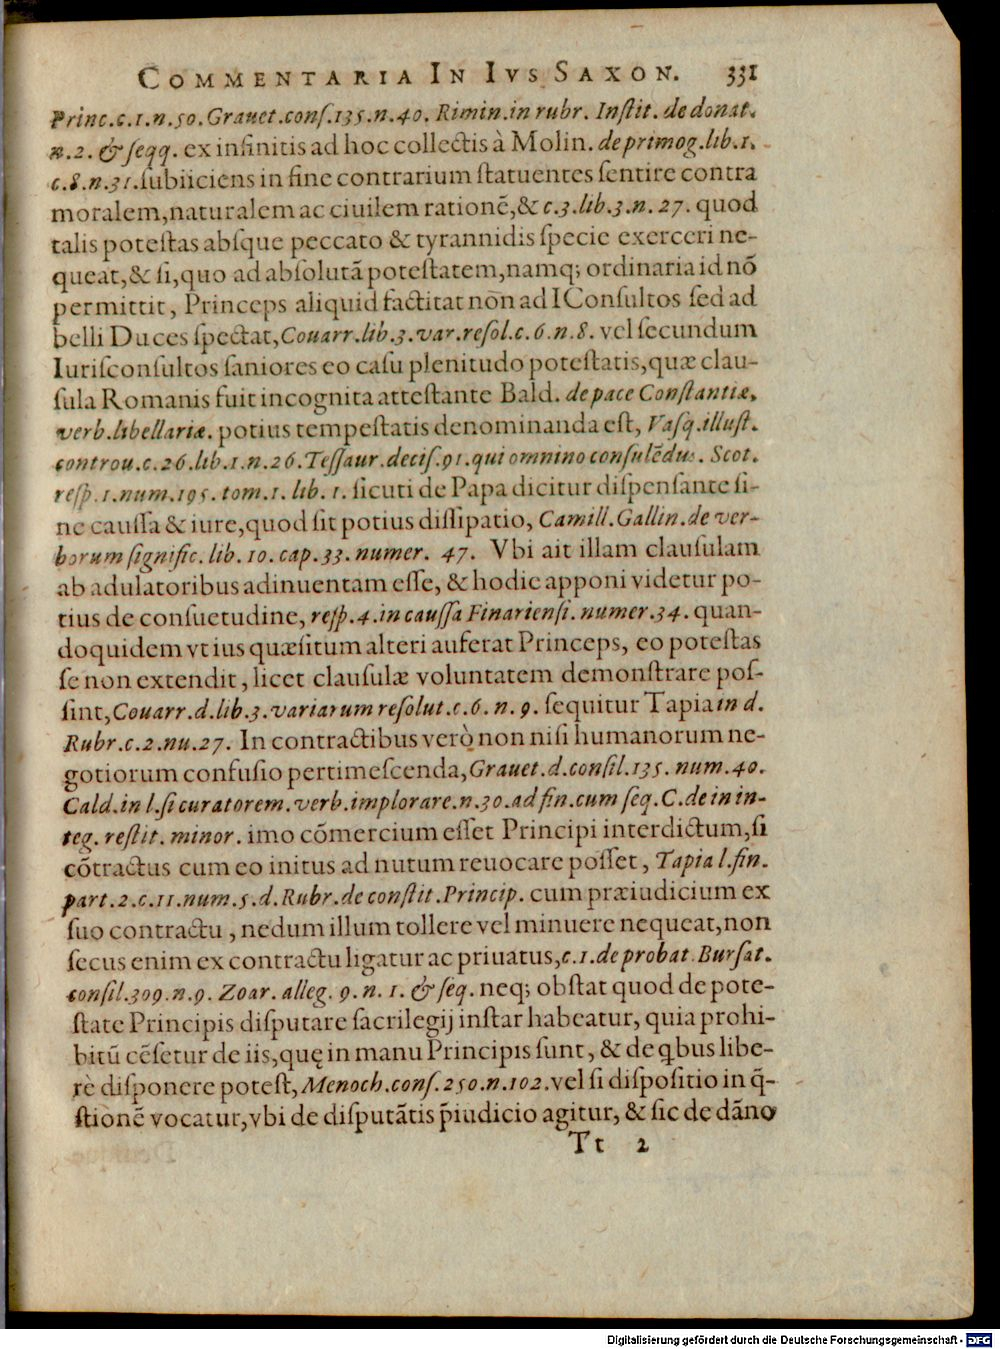 COMMENTARIA IN IVS SAXON. 331
Princ.c.1.n.50.Grauet.conſ.135.n.40. Rimin.in rubr. Inſtit. de donat.
n.2. & ſeqq. ex infinitis ad hoc collectis à Molin. de primog.lib.1.
c.8.n.31.ſubiiciens in fine contrarium ſtatuentes ſentire contra
moralem,naturalem ac ciuilem rationẽ,& c.3.lib.3.n.27. quod
talis poteſtas abſque peccato & tyrannidis ſpecie exerceri ne-
queat,& ſi,quo ad abſolutã poteſtatem,namq; ordinaria id nõ
permittit, Princeps aliquid factitat non ad IConſultos ſed ad
belli Duces ſpectat,Couarr.lib.3.var.reſol.c.6.n.8. vel ſecundum
Iuriſconſultos ſaniores eo caſu plenitudo poteſtatis,quæ clau-
ſula Romanis fuit incognita atteſtante Bald. de pace Conſtantiæ,
verb.libellariæ. potius tempeſtatis denominanda eſt, Vaſq.illuſt.
controu.c.26.lib.1.n.26.Teſſaur.deciſ.91.qui omnino conſulẽdus. Scot.
reſp.1.num.195. tom.1. lib. 1. ſicuti de Papa dicitur diſpenſante ſi-
ne cauſſa & iure,quod ſit potius diſſipatio, Camill.Gallin.de ver-
borum ſignific. lib. 10. cap.33. numer. 47. Vbi ait illam clauſulam
ab adulatoribus adinuentam eſſe, & hodie apponi videtur po-
tius de conſuetudine, reſp.4.in cauſſa Finarienſi. numer.34. quan-
doquidem vt ius quæſitum alteri auferat Princeps, eo poteſtas
ſe non extendit, licet clauſulæ voluntatem demonſtrare poſ-
ſint,Couarr.d.lib.3.variarum reſolut.c.6.n.9. ſequitur Tapia in d.
Rubr.c.2.nu.27. In contractibus verò non niſi humanorum ne-
gotiorum confuſio pertimeſcenda,Grauet.d.conſil.135. num.40.
Cald.in l.ſi curatorem.verb.implorare.n.30.ad fin.cum ſeq.C.de in in-
teg. reſtit. minor. imo cõmercium eſſet Principi interdictum,ſi
cõtractus cum eo initus ad nutum reuocare poſſet, Tapia l.fin.
part.2.c.11.num.5.d.Rubr.de conſtit.Princip. cum præiudicium ex
ſuo contractu, nedum illum tollere vel minuere nequeat,non
ſecus enim ex contractu ligatur ac priuatus,c.1.de probat.Burſat.
conſil.309.n.9. Zoar. alleg. 9.n. 1. & ſeq. neq; obſtat quod de pote-
ſtate Principis diſputare ſacrilegij inſtar habeatur, quia prohi-
bitũ cẽſetur de iis,quę in manu Principis ſunt, & de q̃bus libe-
rè diſponere poteſt,Menoch.conſ.250.n.102.vel ſi diſpoſitio in q̃-
ſtionẽ vocatur,vbi de diſputãtis p̃iudicio agitur, & ſic de dãno
Tt 2
Digitalisierung gefördert durch die Deutsche Forschungsgemeinschaft - DFG